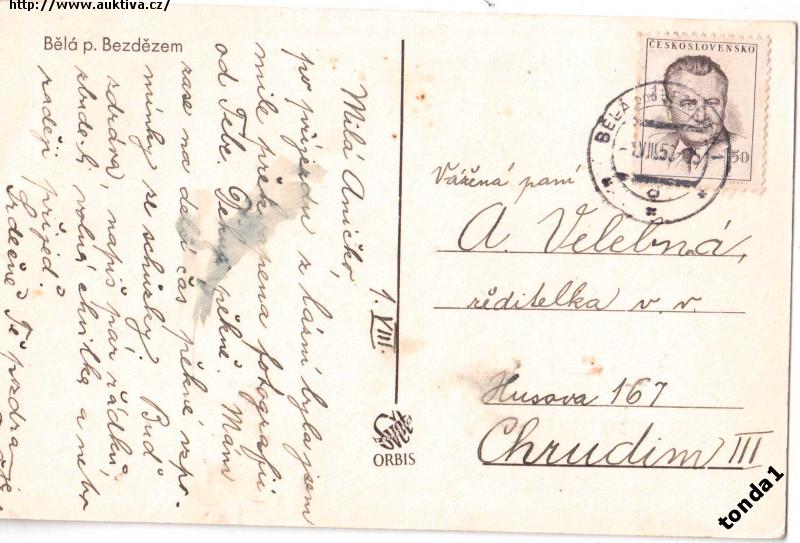 http://www.auktiva.cz/
Bělá p. Bezdězem
Milá Aničko, 1. VIII.
po příjezdu z lázní byla jsem
mile překvapena fotografií
od Tebe. Mám
zase na delší čas pěkné vzpo-
mínky se schůzky. Buď
zdráva, napiš pár řádků,
zbude-li volná chvilka a nebo
raději přijeď.
Srdečně Tě pozdra-
ČESKOSLOVENSKO
1,50
BĚLÁ
Vážená paní
A. Velebná,
ředitelka v. v.
Husova 167
Chrudim III
Svět
ORBIS
tonda1